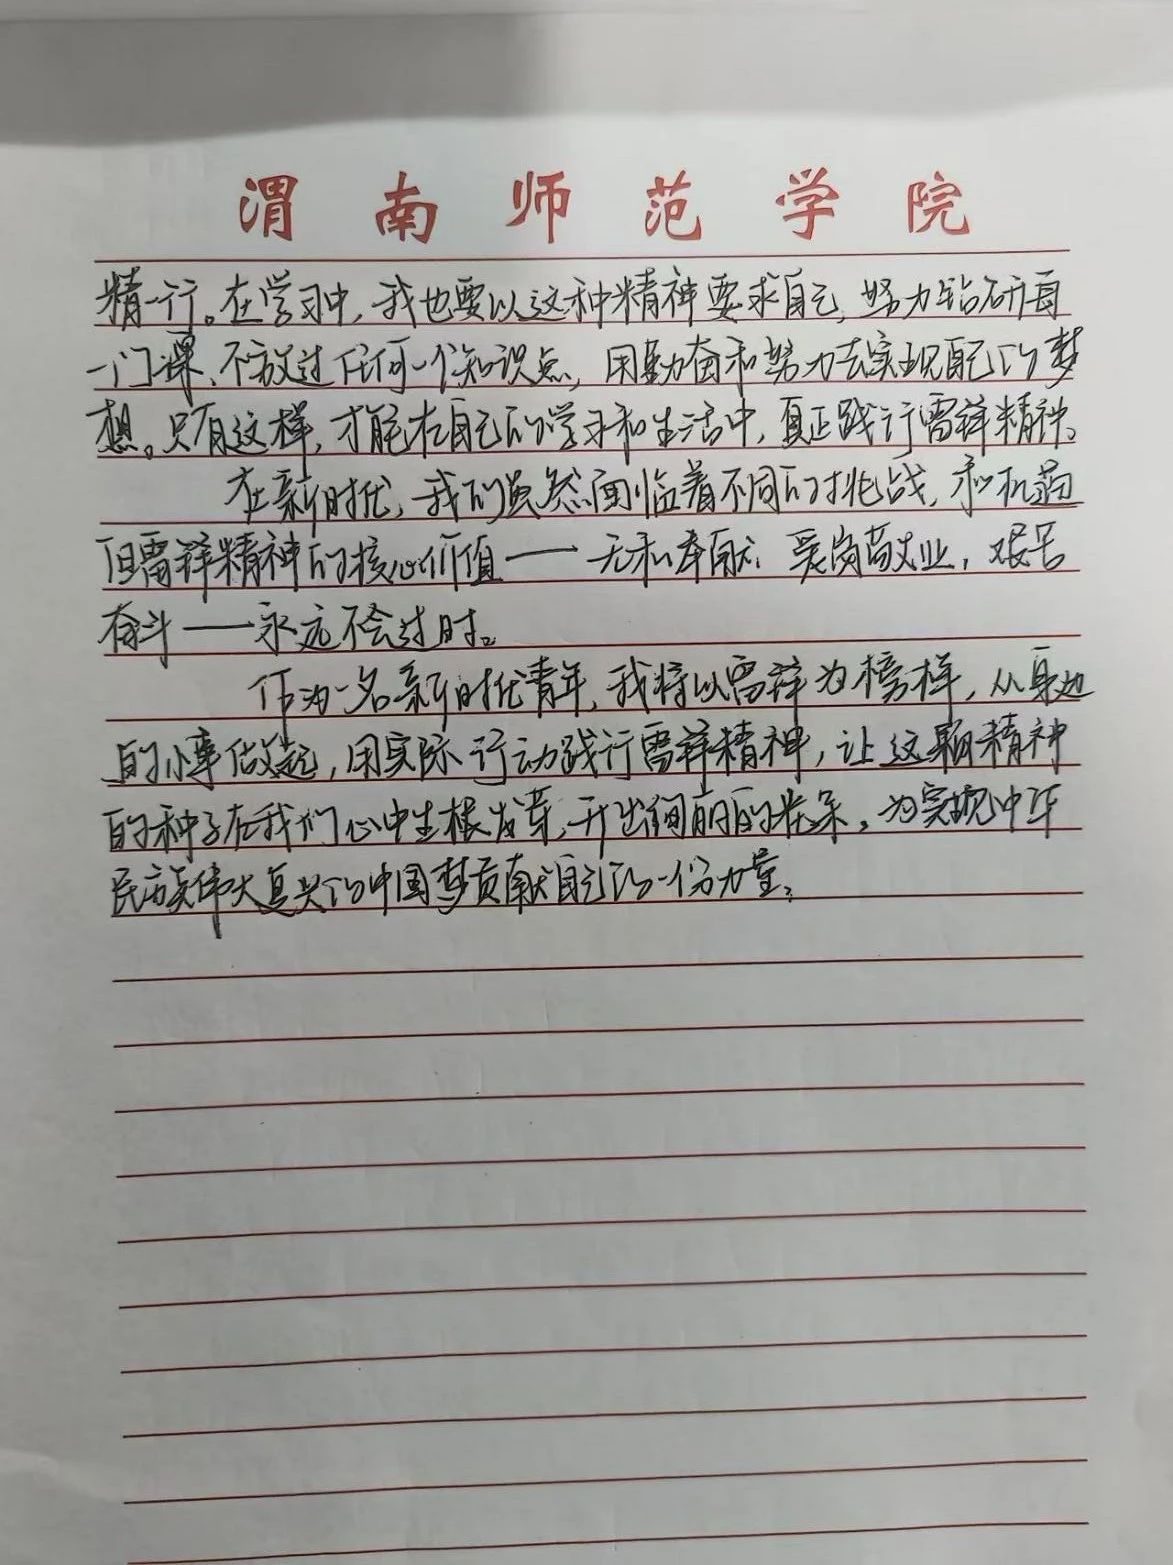 渭南师范学院
精一行。在学习中,我也要以这种精神要求自己,努力钻研每
一门课、不放过任何一个知识点,用勤奋和努力去实现自己的梦
想。只有这样,才能在自己的学习和生活中,真正践行雷锋精神。
在新时代,我们虽然面临着不同的挑战,和机遇
但雷锋精神的核心价值——无私奉献、爱岗敬业,艰苦
奋斗——永远不会过时。
作为一名新时代青年,我将以雷锋为榜样,从身边
的小事做起,用实际行动践行雷锋精神,让这颗精神
的种子在我们心中生根发芽,开出绚丽的花朵,为实现中华
民族伟大复兴的中国梦贡献自己的一份力量。